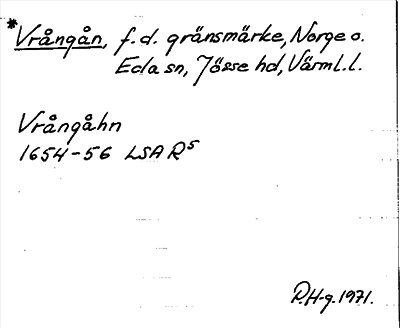 *Vrångån, f.d. gränsmärke, Norge o.
Eda sn, Jösse hd, Värml. l.
Vrångåhn
1654-56 LSA R5
P.H-g. 1971.